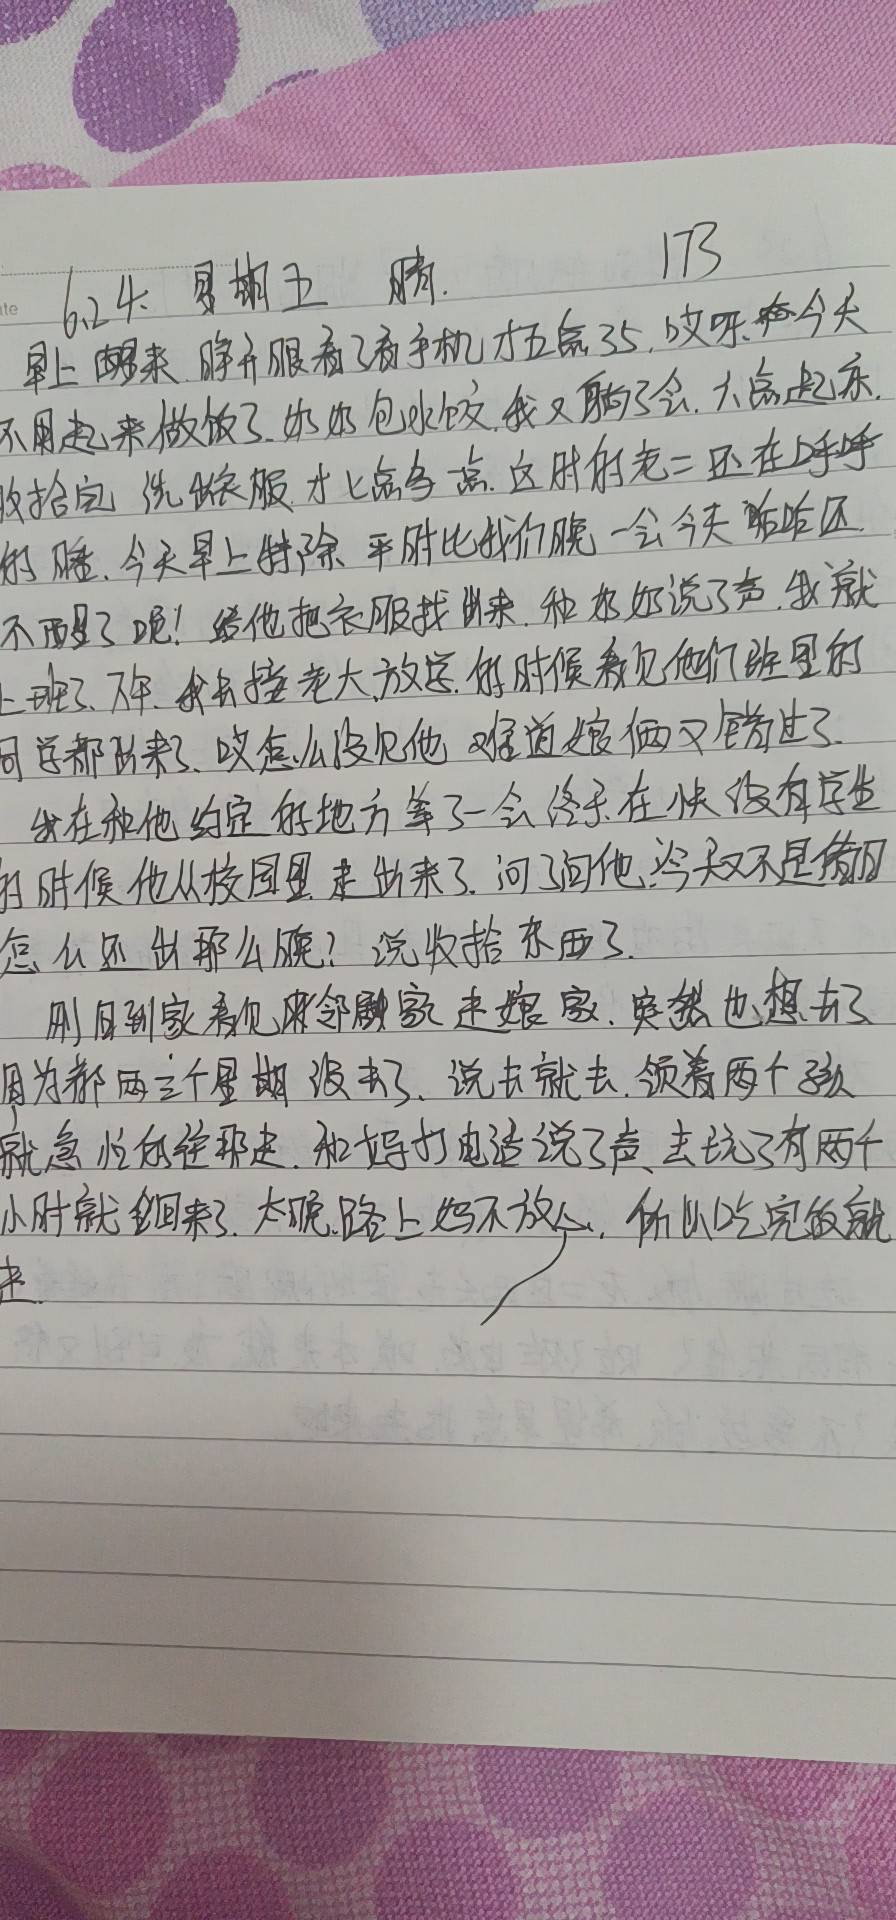 6.24. 星期五 晴. 173
早上醒来.睁开眼看了看手机才五点35.哎呀.今天
不用起来做饭了.奶奶包水饺.我又躺了会.六点起床.
收拾完 洗完衣服 才七点多一点.这时的老二还在呼呼
的睡.今天早上特除 平时比我们晚一会今天咋还
不醒了呢!给他把衣服找出来.和奶奶说了声.我就
上班了.下午.我去接老大放学.的时候看见他们班里的
同学都出来了.哎怎么没见他 难道娘俩又错过了.
我在和他约定的地方等了一会终于在快没有学生
的时候他从校园里走出来了.问了问他.今天又不是值日
怎么还出那么晚?说收拾东西了.
刚回到家看见邻家走娘家.突然也想去了
因为都两三个星期没去了.说去就去.领着两个孩
就急忙的往那走.和妈打电话说了声、去玩了有两个
小时就回来了.太晚.路上妈不放心.所以吃完饭就
走.